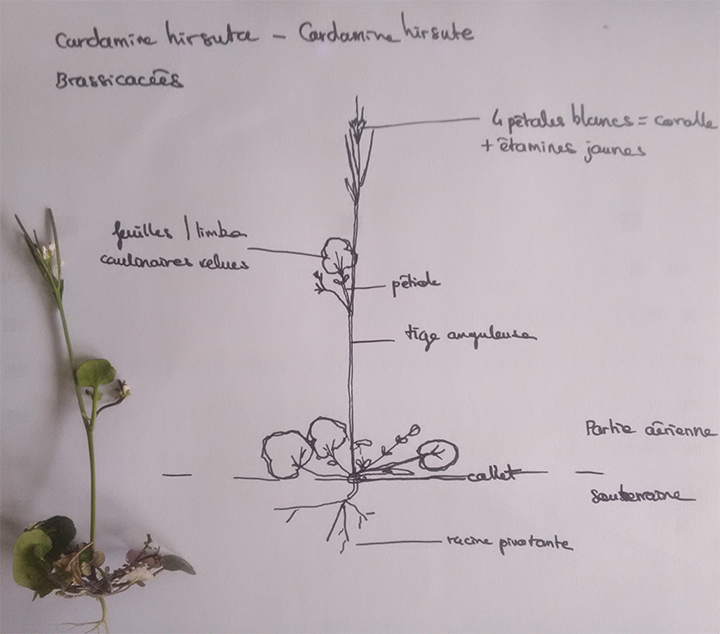 Cardamine hirsuta - Cardamine hirsute
Brassicacées
4 pétales blancs = corolle
+ étamines jaunes
feuilles / limbe
caulinaires velues
pétiole
tige anguleuse
Partie aérienne
collet
souterraine
racine pivotante